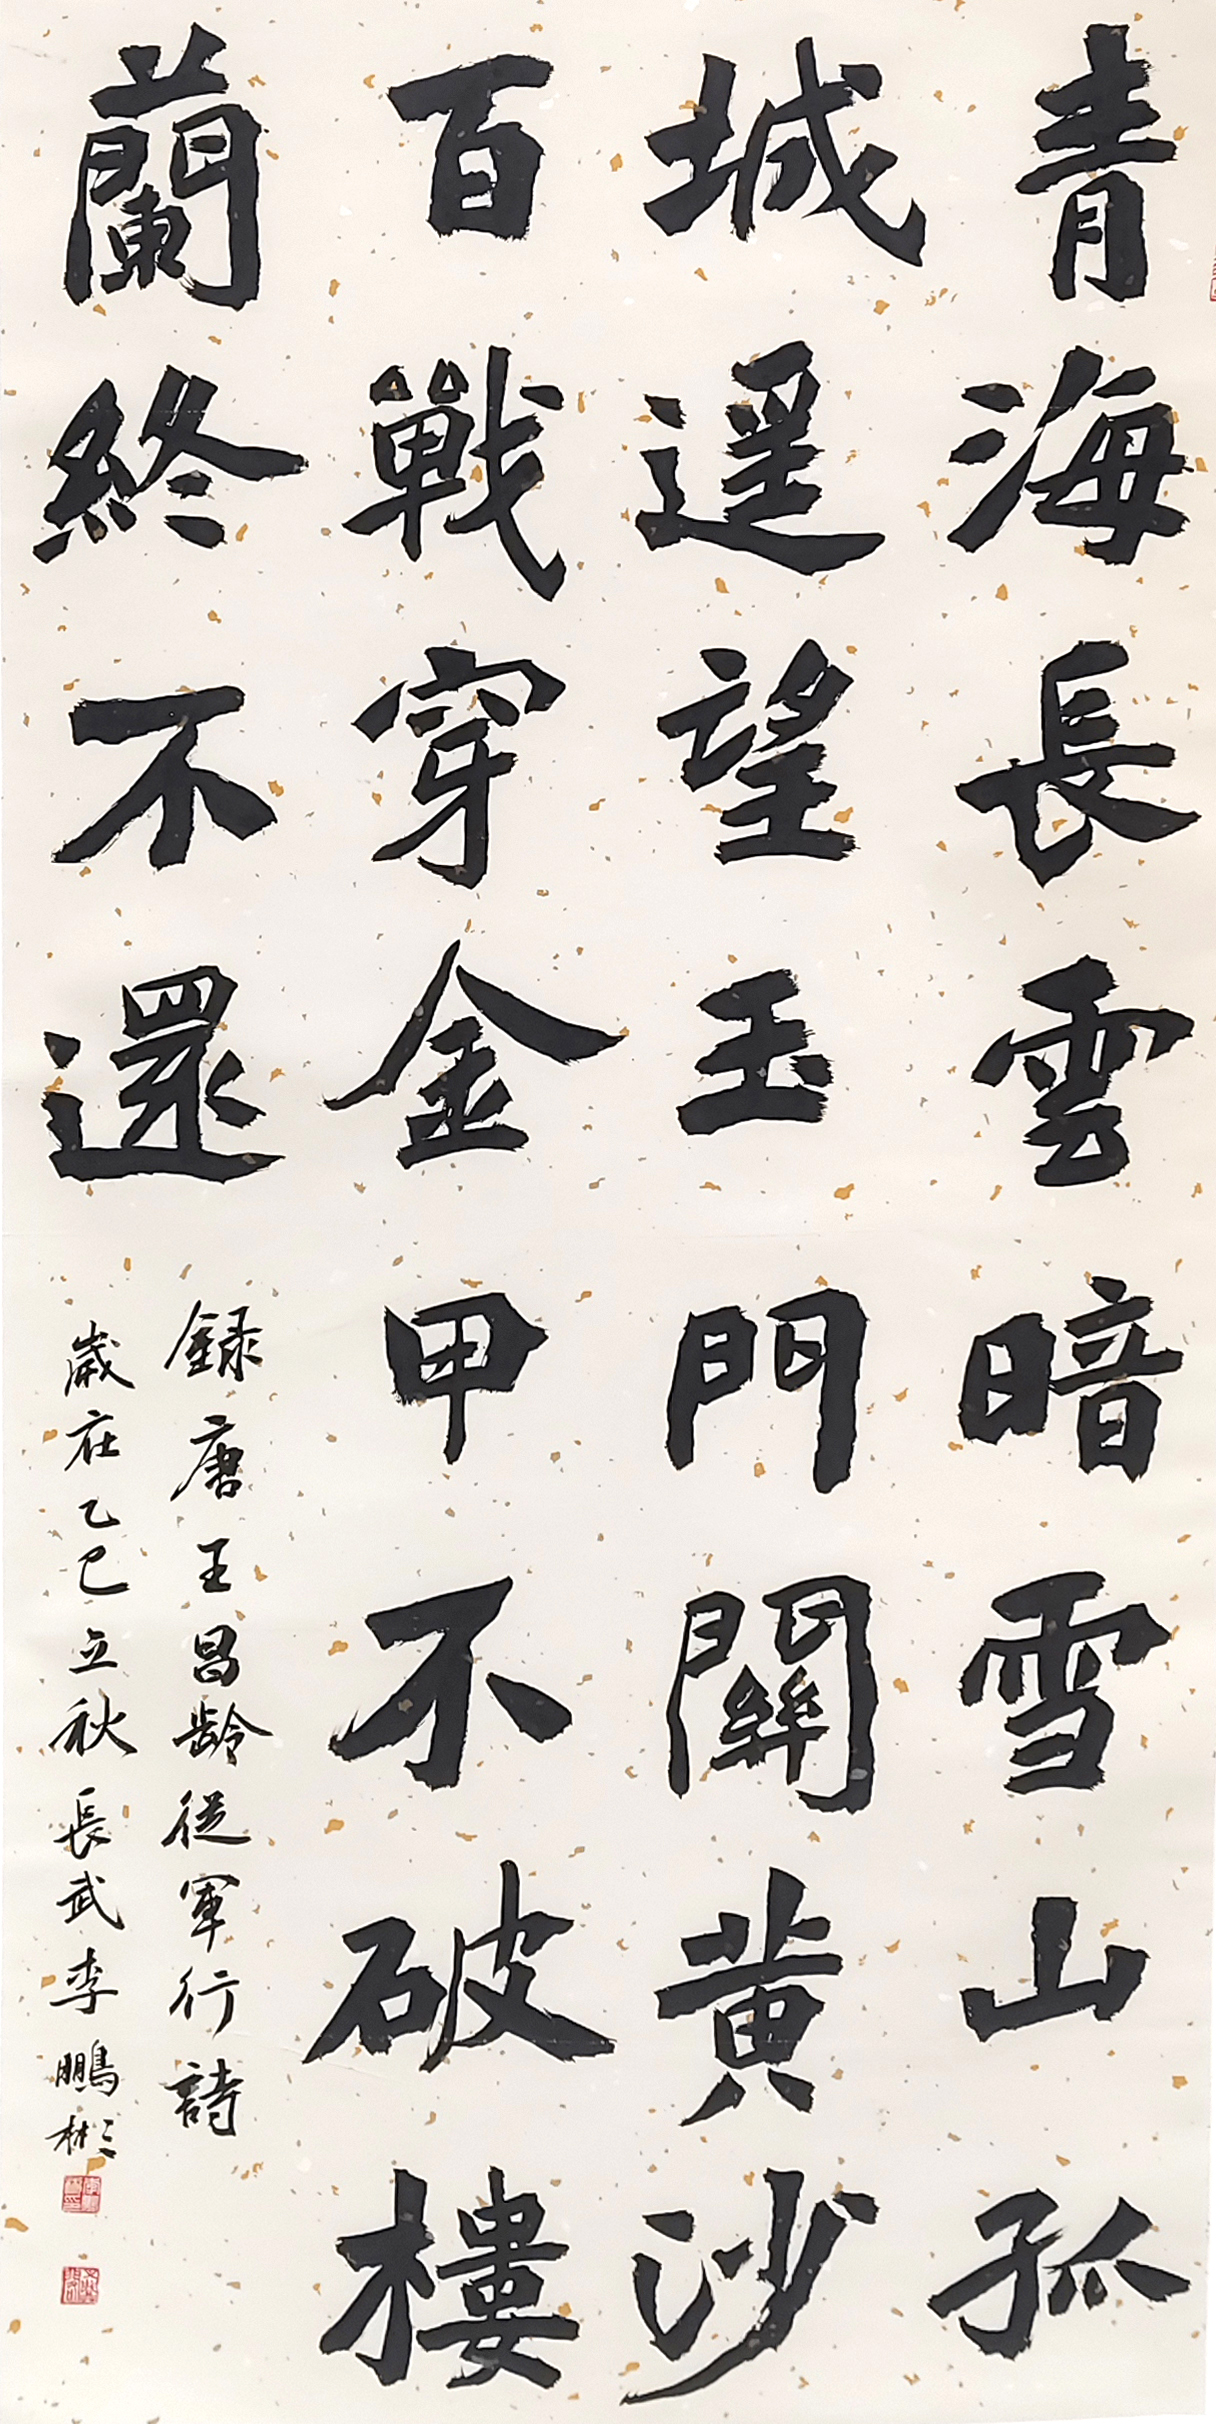 青海長雲暗雪山孤
城遥望玉門關黄沙
百戰穿金甲不破樓
蘭終不還
録唐王昌龄從軍行詩
歲在乙巳立秋長武李鵬彬